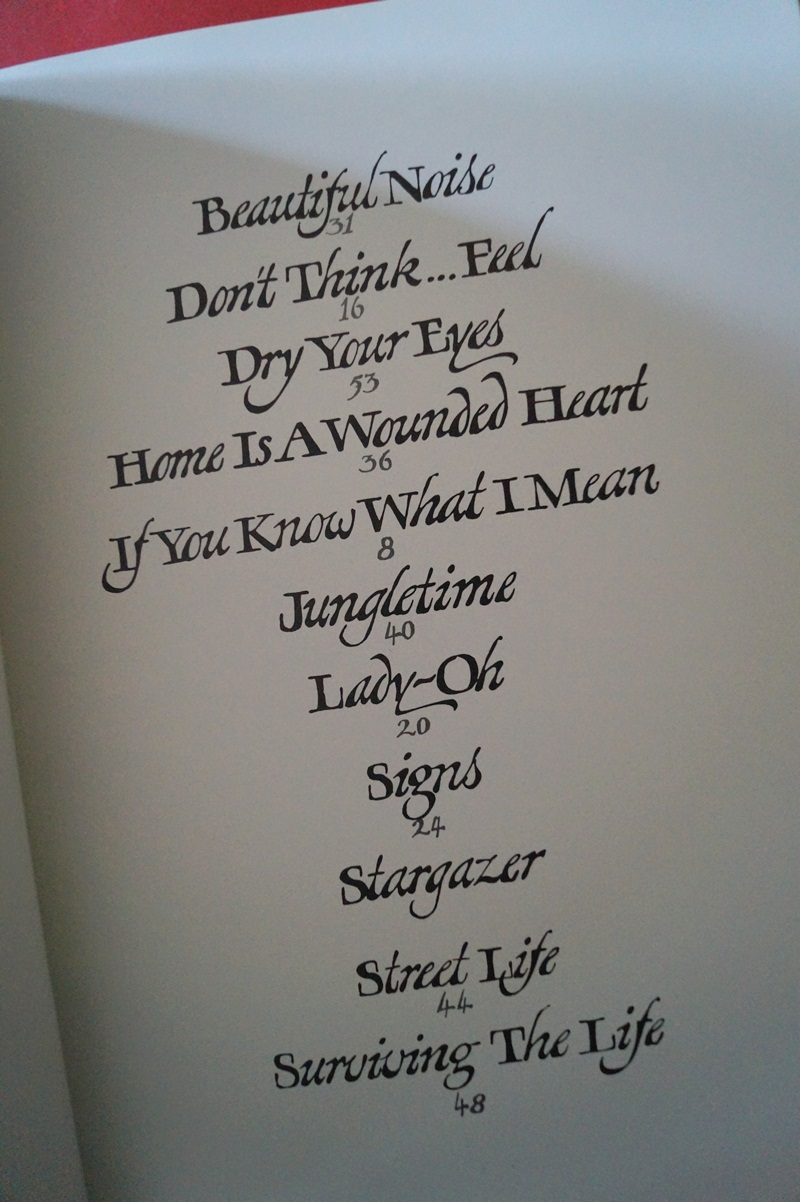 Beautiful Noise
31
Don't Think...Feel
16
Dry Your Eyes
53
Home Is A Wounded Heart
36
If You Know What I Mean
8
Jungletime
40
Lady-Oh
20
Signs
24
Stargazer
Street Life
44
Surviving The Life
48